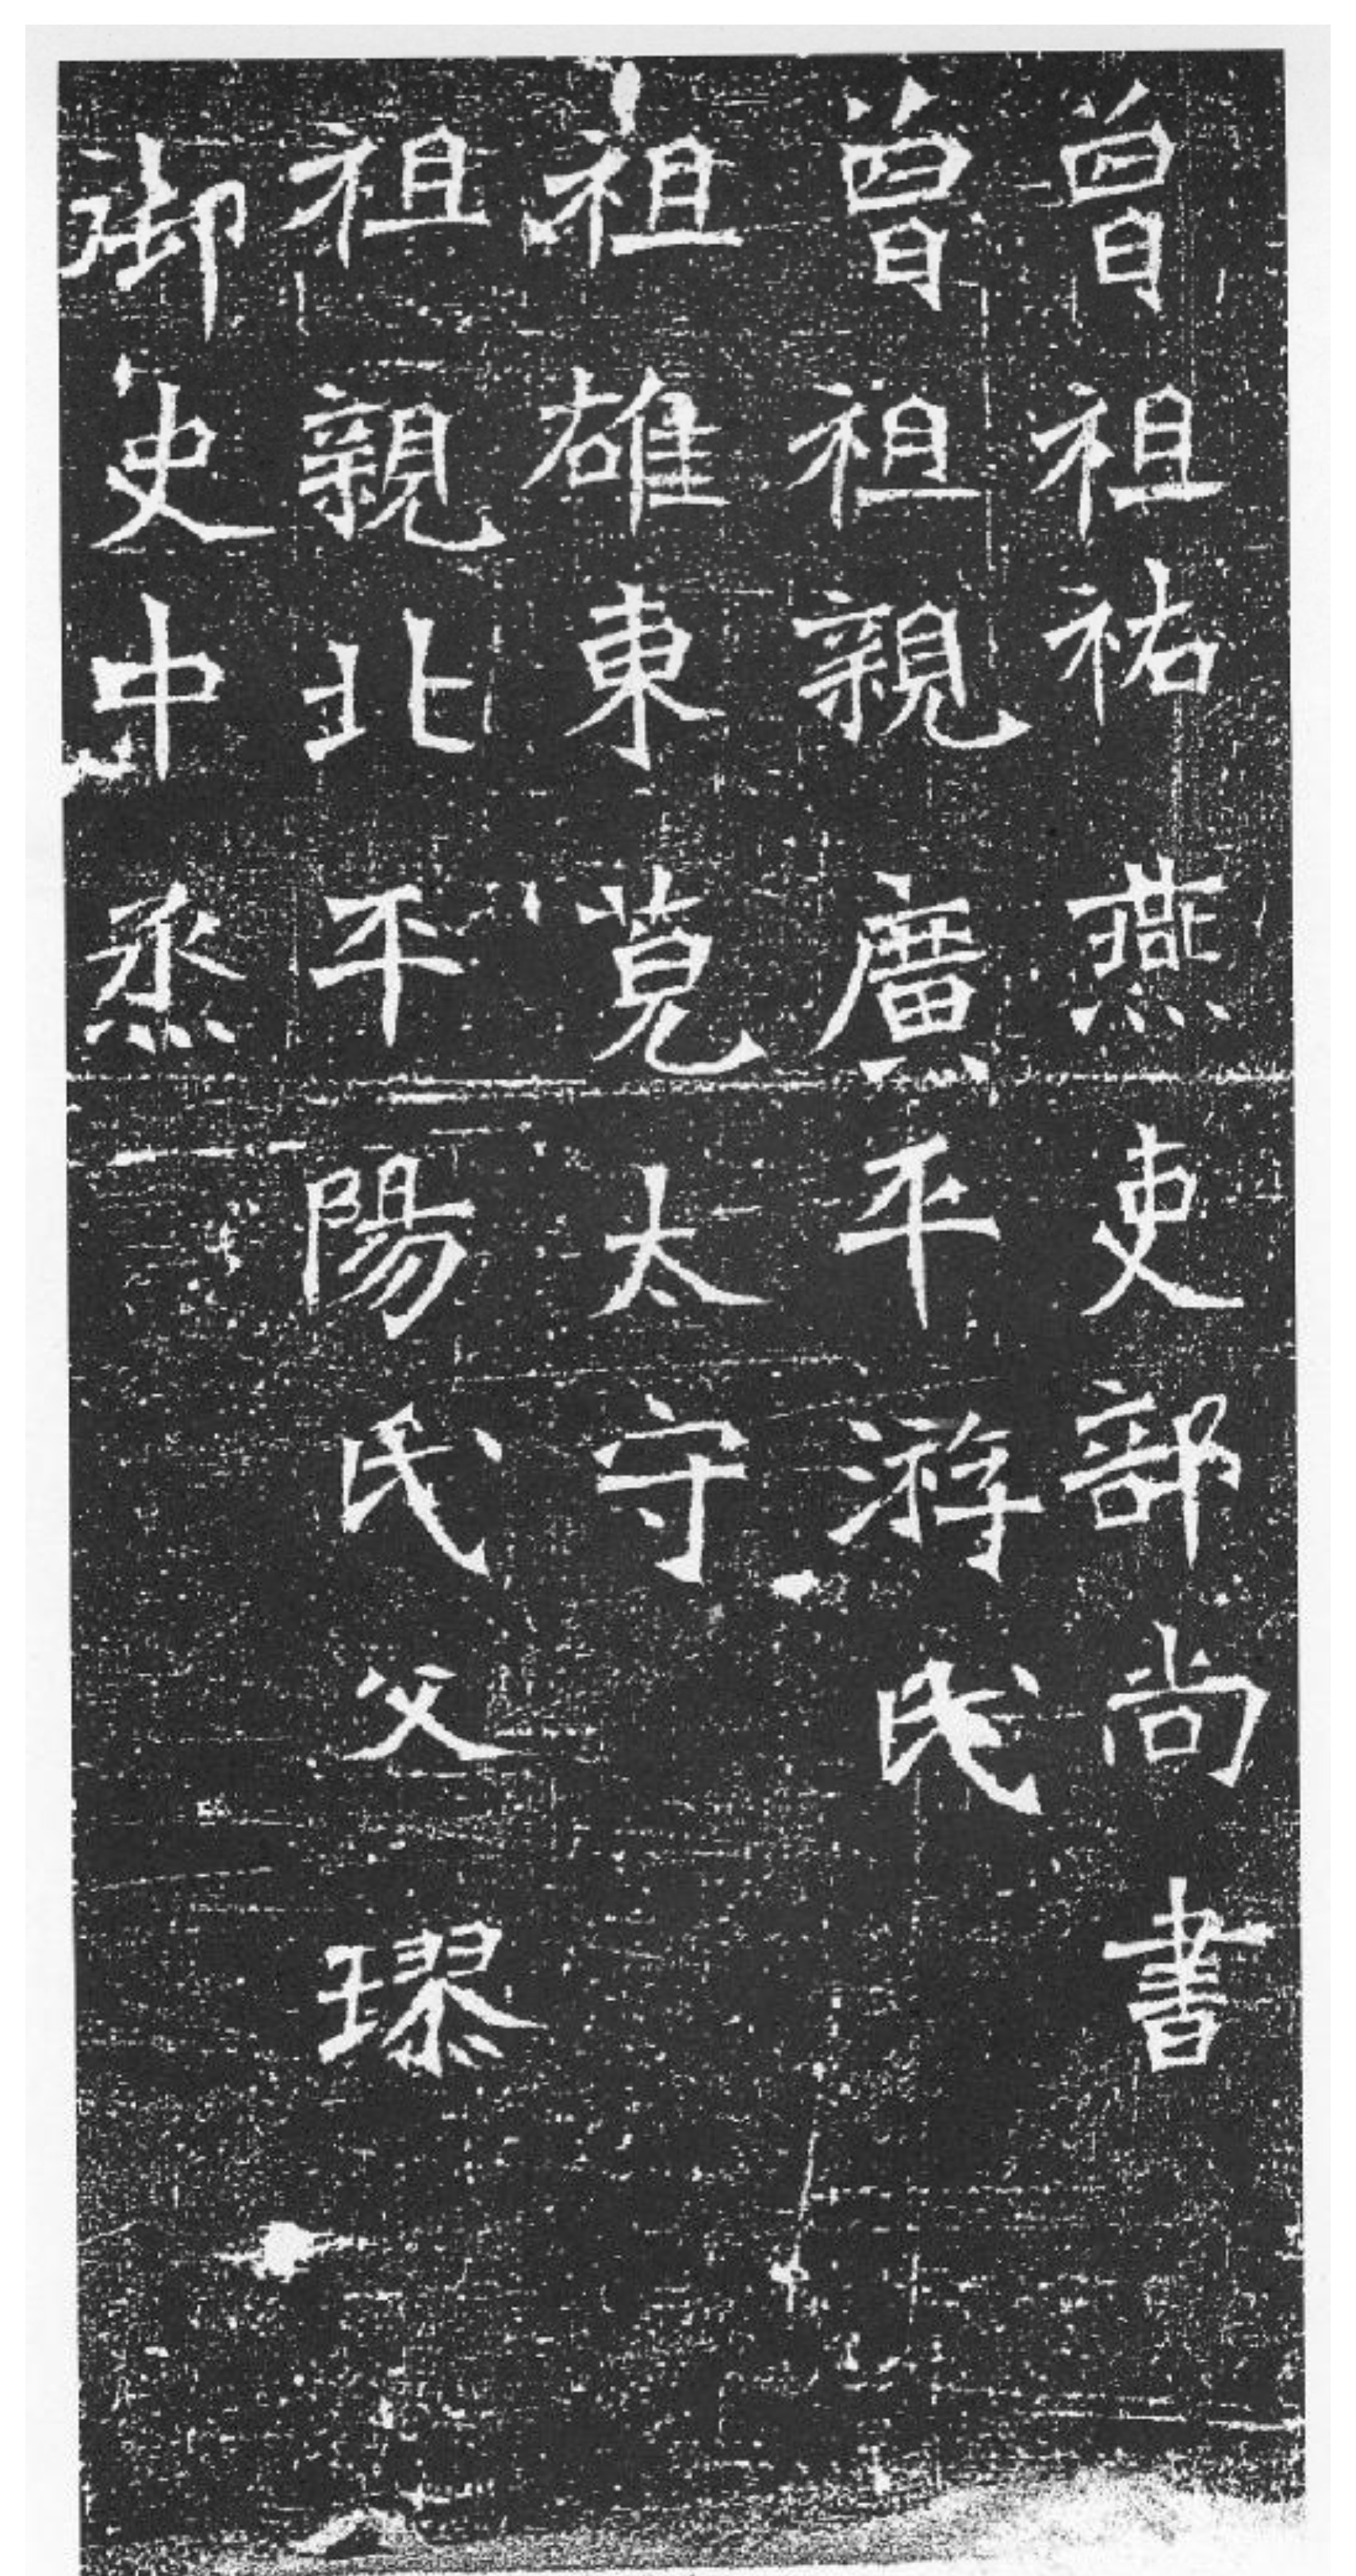 曾祖祐燕吏部尚書
曾祖親廣平游氏
祖雄東莧太守
祖親北平陽氏父璆
御史中丞